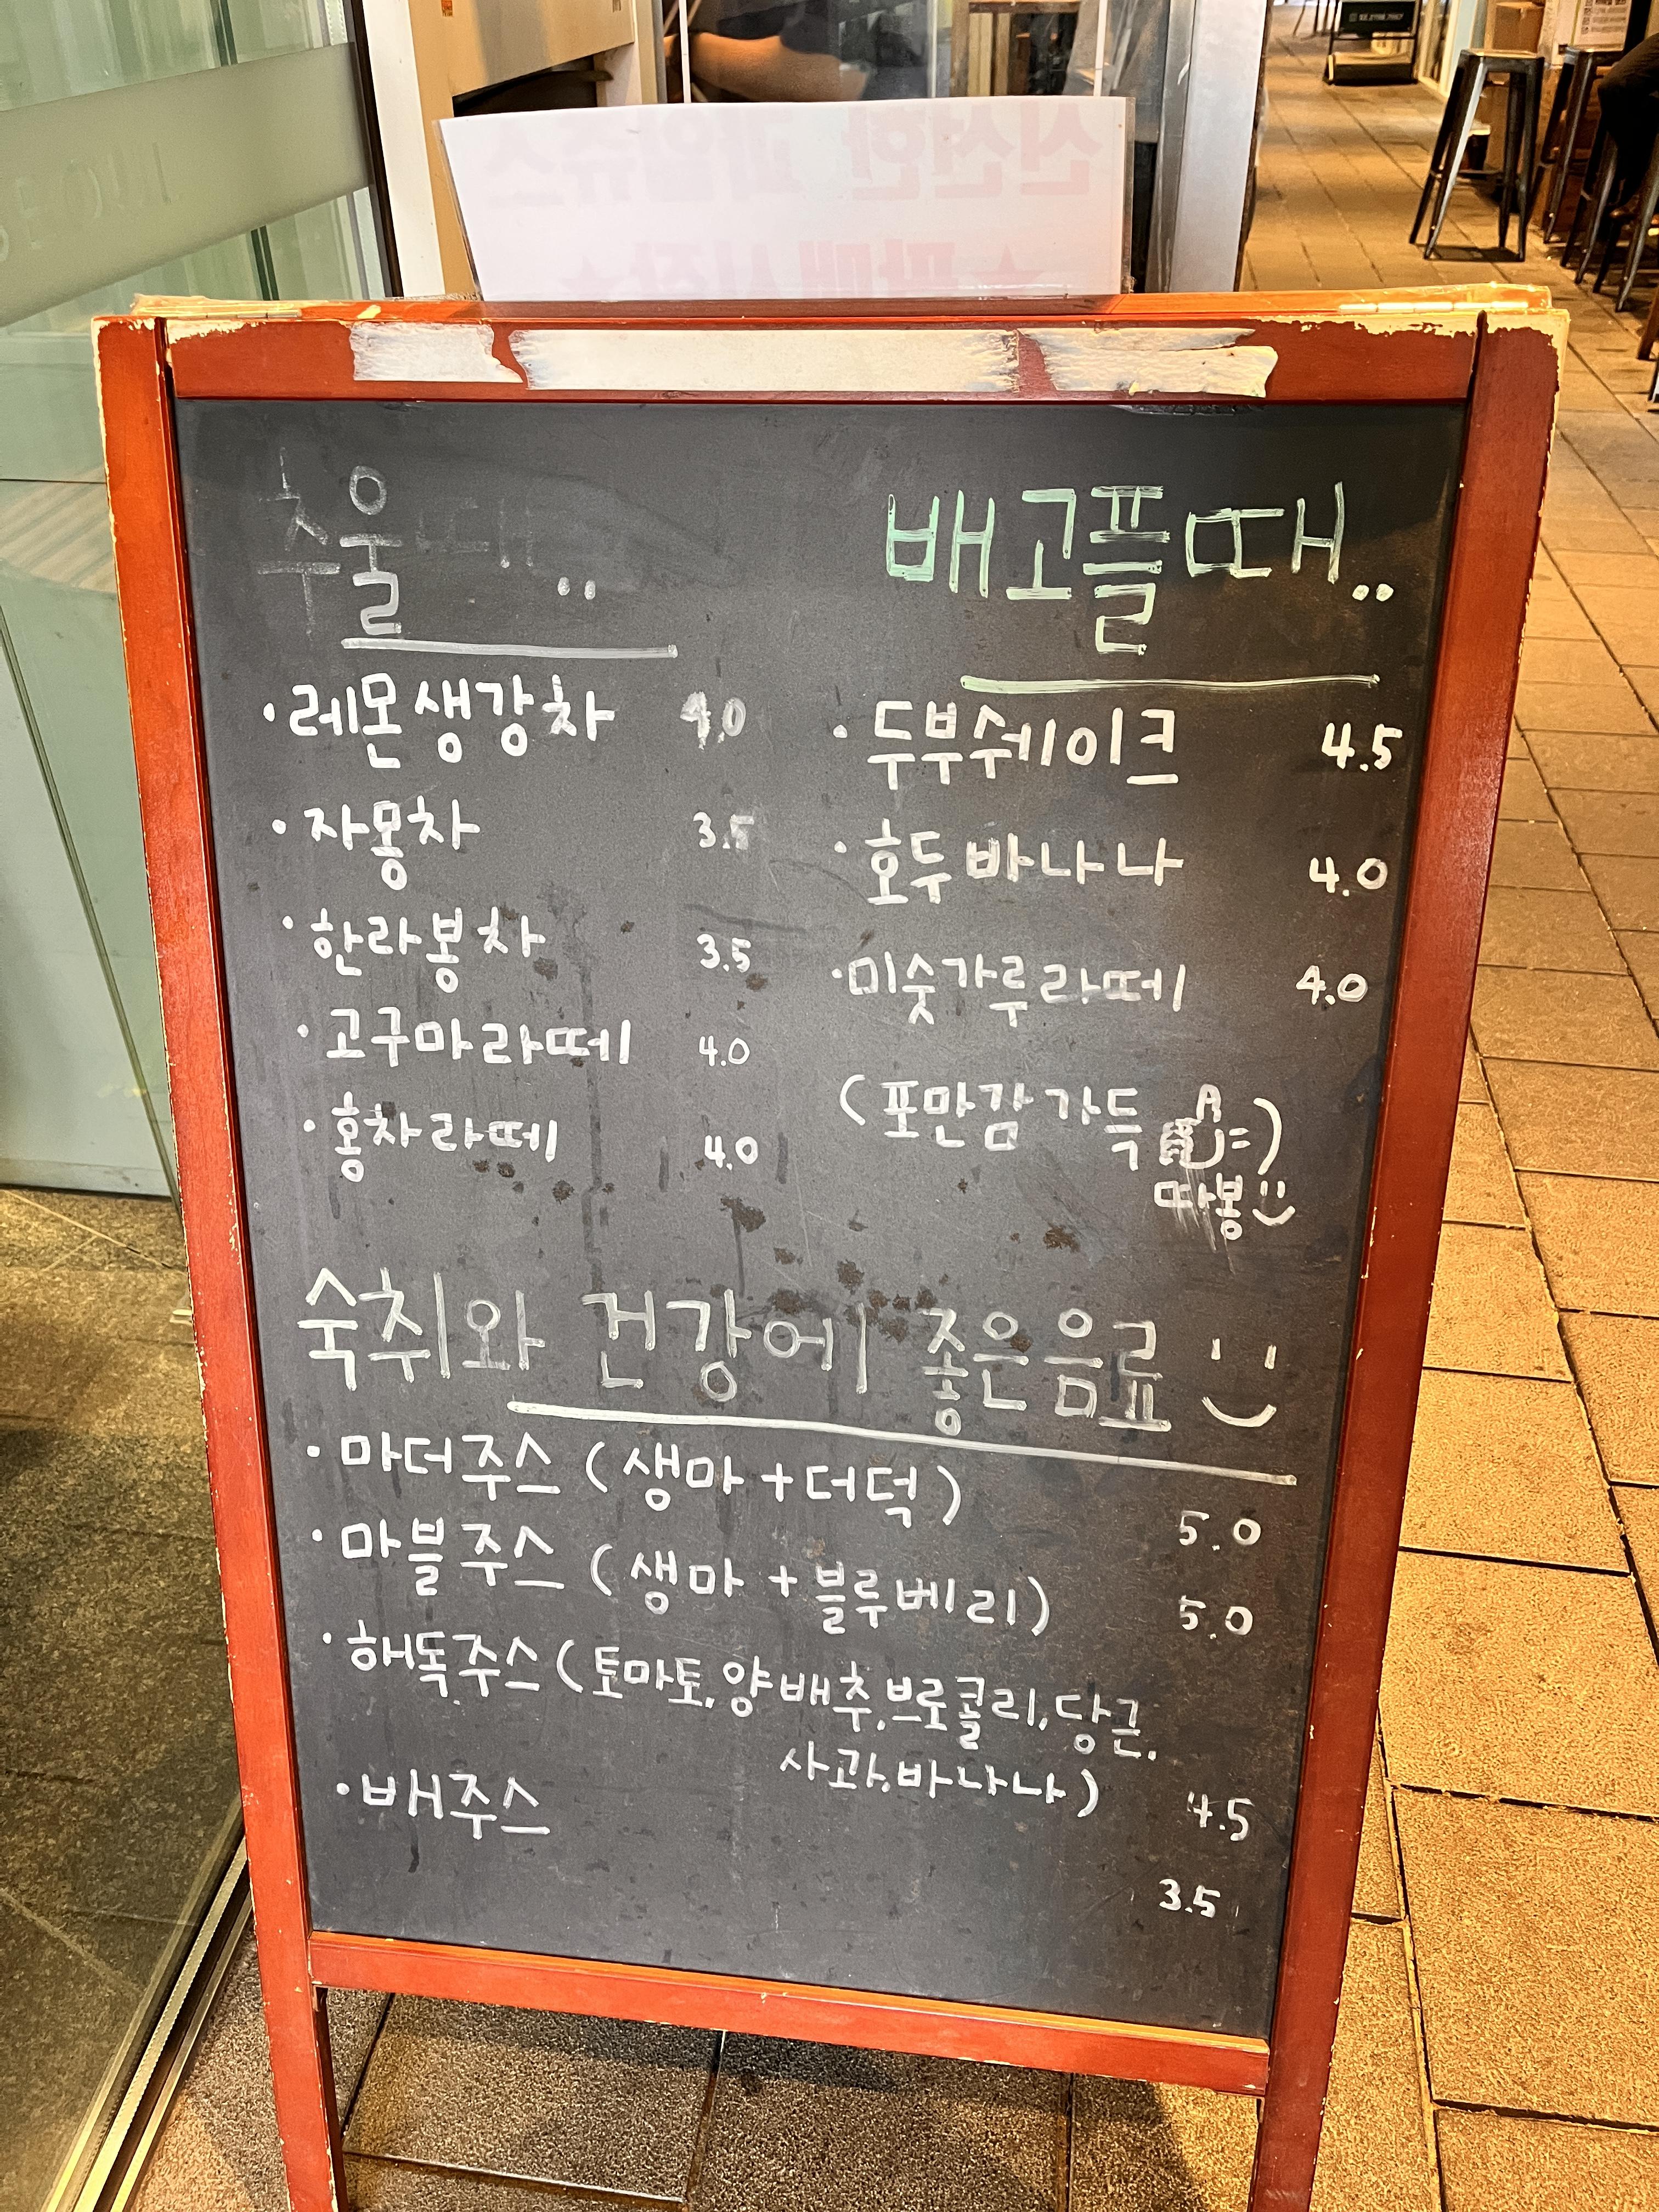 추울때..
·레몬생강차 4.0
·자몽차 3.5
·한라봉차 3.5
·고구마라떼 4.0
·홍차라떼 4.0
배고플때..
·두부쉐이크 4.5
·호두바나나 4.0
·미숫가루라떼 4.0
(포만감가득 =)
따봉
숙취와 건강에 좋은음료
·마더주스 (생마+더덕) 5.0
·마블주스 (생마+블루베리) 5.0
·해독주스(토마토,양배추,브로콜리,당근,
사과,바나나) 4.5
·배주스 3.5